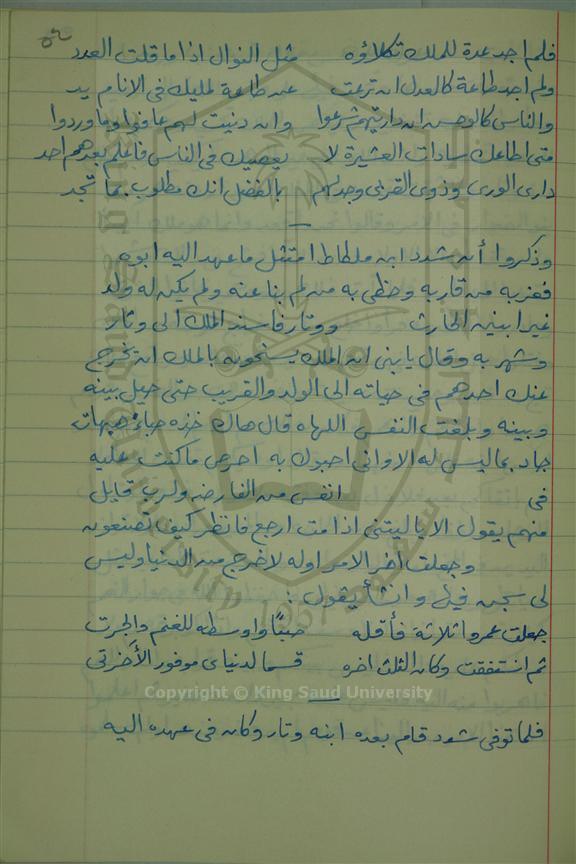 ٥٢
فلم اجد عدة للملك تكلاؤه مثل النوال اذا ما قلت العدد
ولم اجد طاعة كالعدل ان نزعت عن طاعة لمليك في الانام يد
والناس كالوحش ان داريتهم رعوا وان دنيت لهم عافوا وما وردوا
متى اطاعك سادات العشيرة لا يعصيك في الناس فاعلم بعدهم احد
دارى الورى وذوى القربى وجد لهم بالفضل انك مطلوب بما تجد
وذكروا أن شدد ابن ملطاط امتثل ما عهد اليه ابوه
فعز به من قاربه وحظى به من لم ينا عنه ولم يكن له ولد
غير ابنين الحارث ووتار فاسند الملك الى وتار
وشهر به وقال يابنى ان الملك يستحوبه بالملك ان يخرج
عنك احدهم في حياته الى الولد والقريب حتى حيل بينه
وبينه وبلغت النفس اللهاه قال هاك خذه حباء هيهات
جاد بما ليس له الا وانى احبوك به احرص ما كنت عليه
فى انفس من القارضه ولرب قايل
منهم يقول الا ياليتنى اذا مت ارجع فانظر كيف تصنعون
وجعلت آخر الامر اوله لاخرج من الدنيا وليس
لى سجن فيها وانشأ يقول :
جعلت عمروا ثلاثة فأقله صبًا واوسطه للغنم والجرت
ثم استفقت وكان الثلث اخره قسما لدنياى موفور الأخرتى
Copyright © King Saud University
فلما توفى شدد قام بعده ابنه وتار وكان في عهده اليه